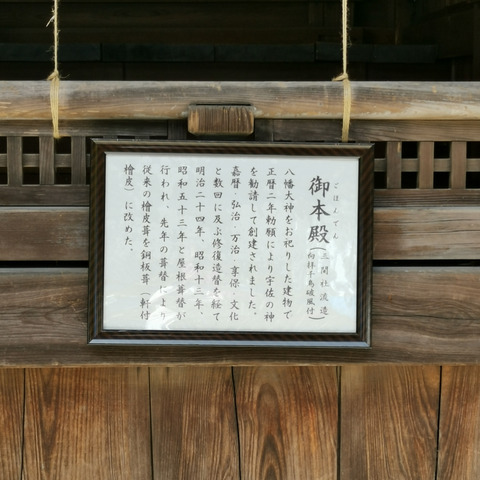 ごほんでん
御本殿(三間社流造
(向拝千鳥破風付)
八幡大神をお祀りした建物で
正暦二年勅願により宇佐の神
を勧請して創建されました。
嘉暦・弘治・万治・享保・文化
と数回に及ぶ修復造替を経て
明治二十四年、昭和十三年、
昭和五十三年と屋根葺替が
行われ、先年の葺替により
従来の檜皮葺を銅板葺(軒付
檜皮)に改めた。